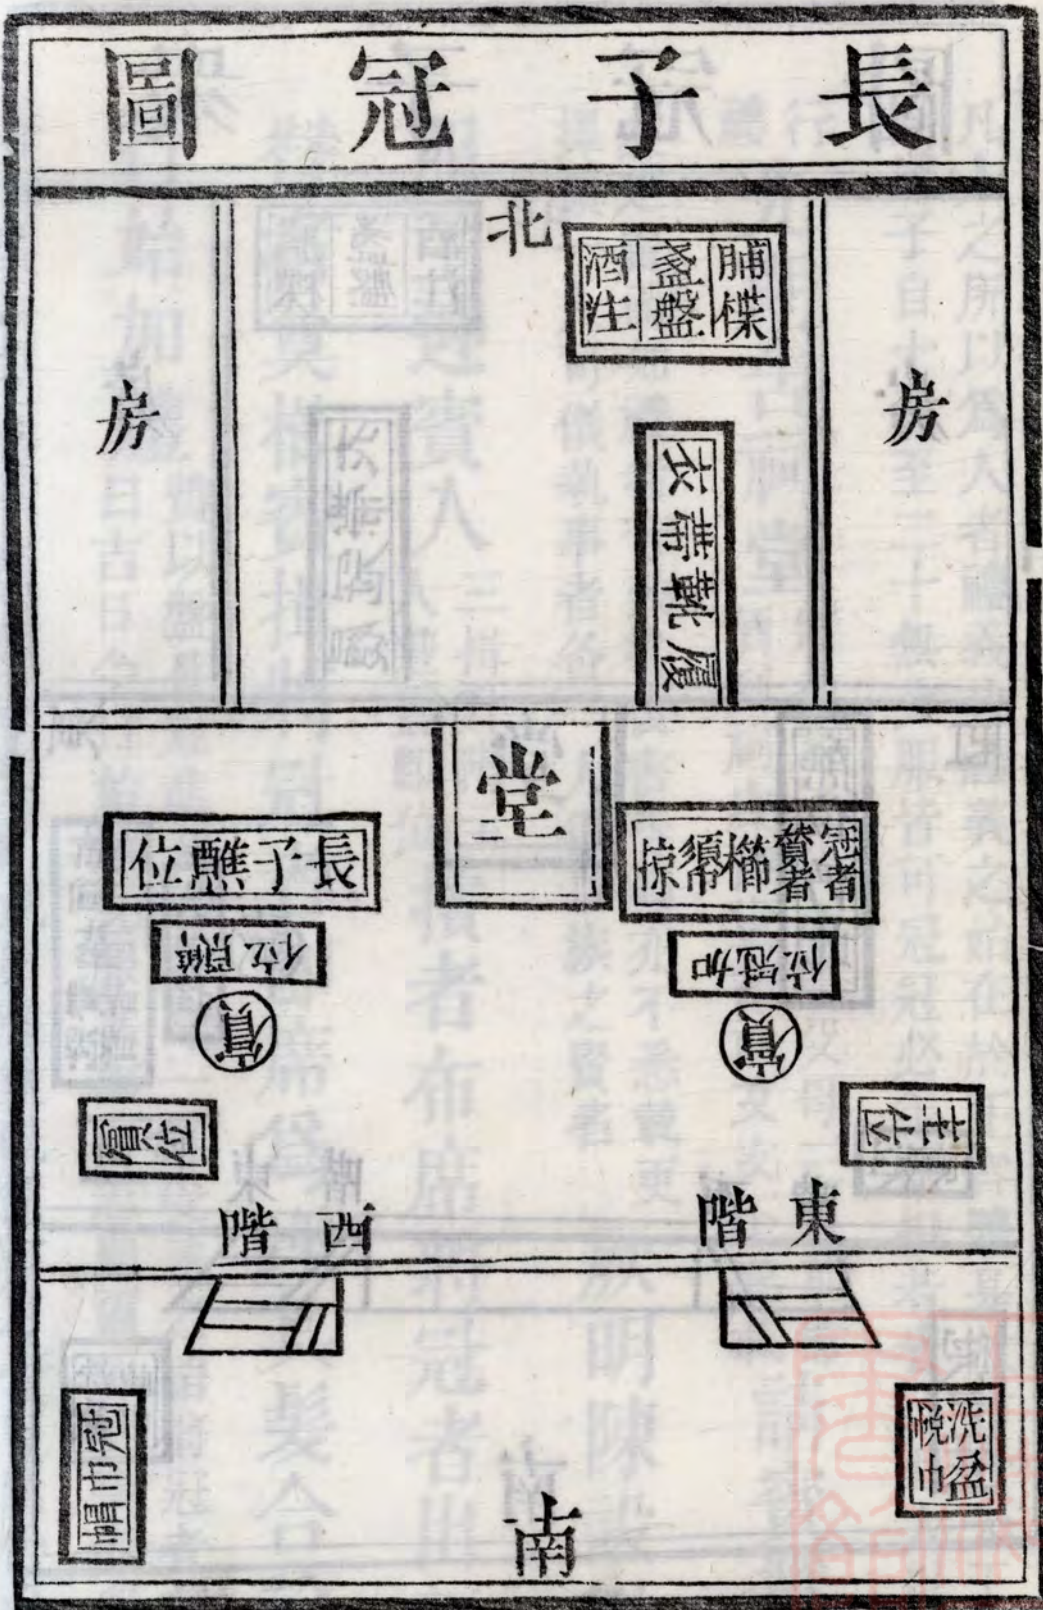 長子冠圖
北
脯楪
盞盤
酒注
房
房
衣帶靴履
堂
冠者
賛者
櫛㡏掠
長子醮位
加冠位
醮席位
賔
賔
主位
賔位
東階
西階
洗盆
帨巾
冠巾帽
南